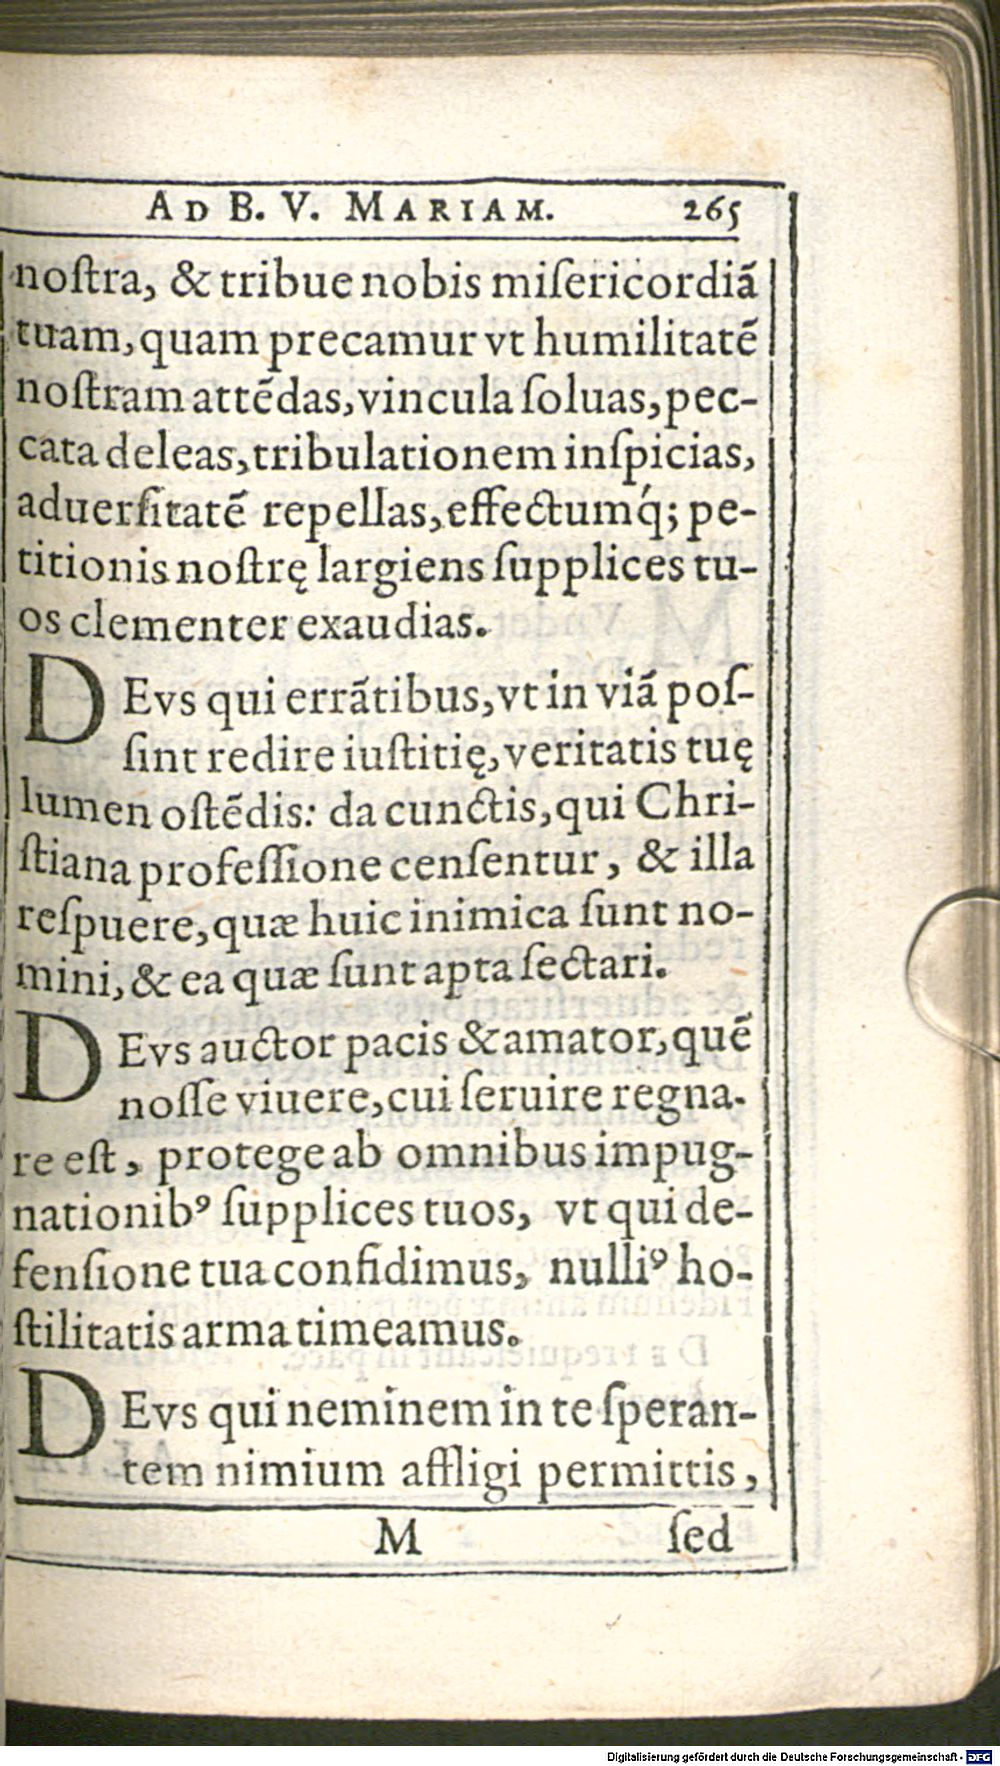 AD B. V. MARIAM. 265
noſtra, & tribue nobis miſericordiã
tuam, quam precamur vt humilitatẽ
noſtram attẽdas, vincula ſoluas, pec-
cata deleas, tribulationem inſpicias,
aduerſitatẽ repellas, effectumq́; pe-
titionis noſtrę largiens ſupplices tu-
os clementer exaudias.
DEVS qui errãtibus, vt in viã poſ-
ſint redire iuſtitię, veritatis tuę
lumen oſtẽdis: da cunctis, qui Chri-
ſtiana profeſſione cenſentur, & illa
reſpuere, quæ huic inimica ſunt no-
mini, & ea quæ ſunt apta ſectari.
DEVS auctor pacis & amator, quẽ
noſſe viuere, cui ſeruire regna-
re eſt, protege ab omnibus impug-
nationibꝰ ſupplices tuos, vt qui de-
fenſione tua confidimus, nulliꝰ ho-
ſtilitatis arma timeamus.
DEVS qui neminem in te ſperan-
tem nimium affligi permittis,
M ſed
Digitalisierung gefördert durch die Deutsche Forschungsgemeinschaft - DFG